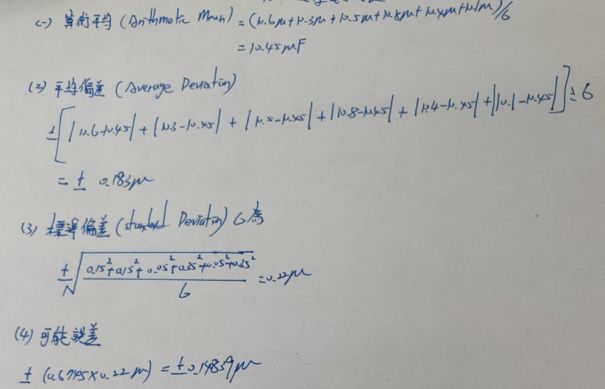 (一) 算術平均 (Arithmetic Mean) = (10.6μ+10.3μ+10.5μ+10.8μ+10.4μ+10.1μ)/6
= 10.45μF
(2) 平均偏差 (Average Deviation)
±[|10.6-10.45| + |10.3-10.45| + |10.5-10.45| + |10.8-10.45| + |10.4-10.45| + |10.1-10.45|] ÷ 6
= ± 0.183μ
(3) 標準偏差 (standard Deviation) 6 為
±√(0.15²+0.15²+0.05²+0.35²+0.05²+0.35²)/6 = 0.22μ
(4) 可能誤差
± (0.6745×0.22μ) = ±0.14839μ